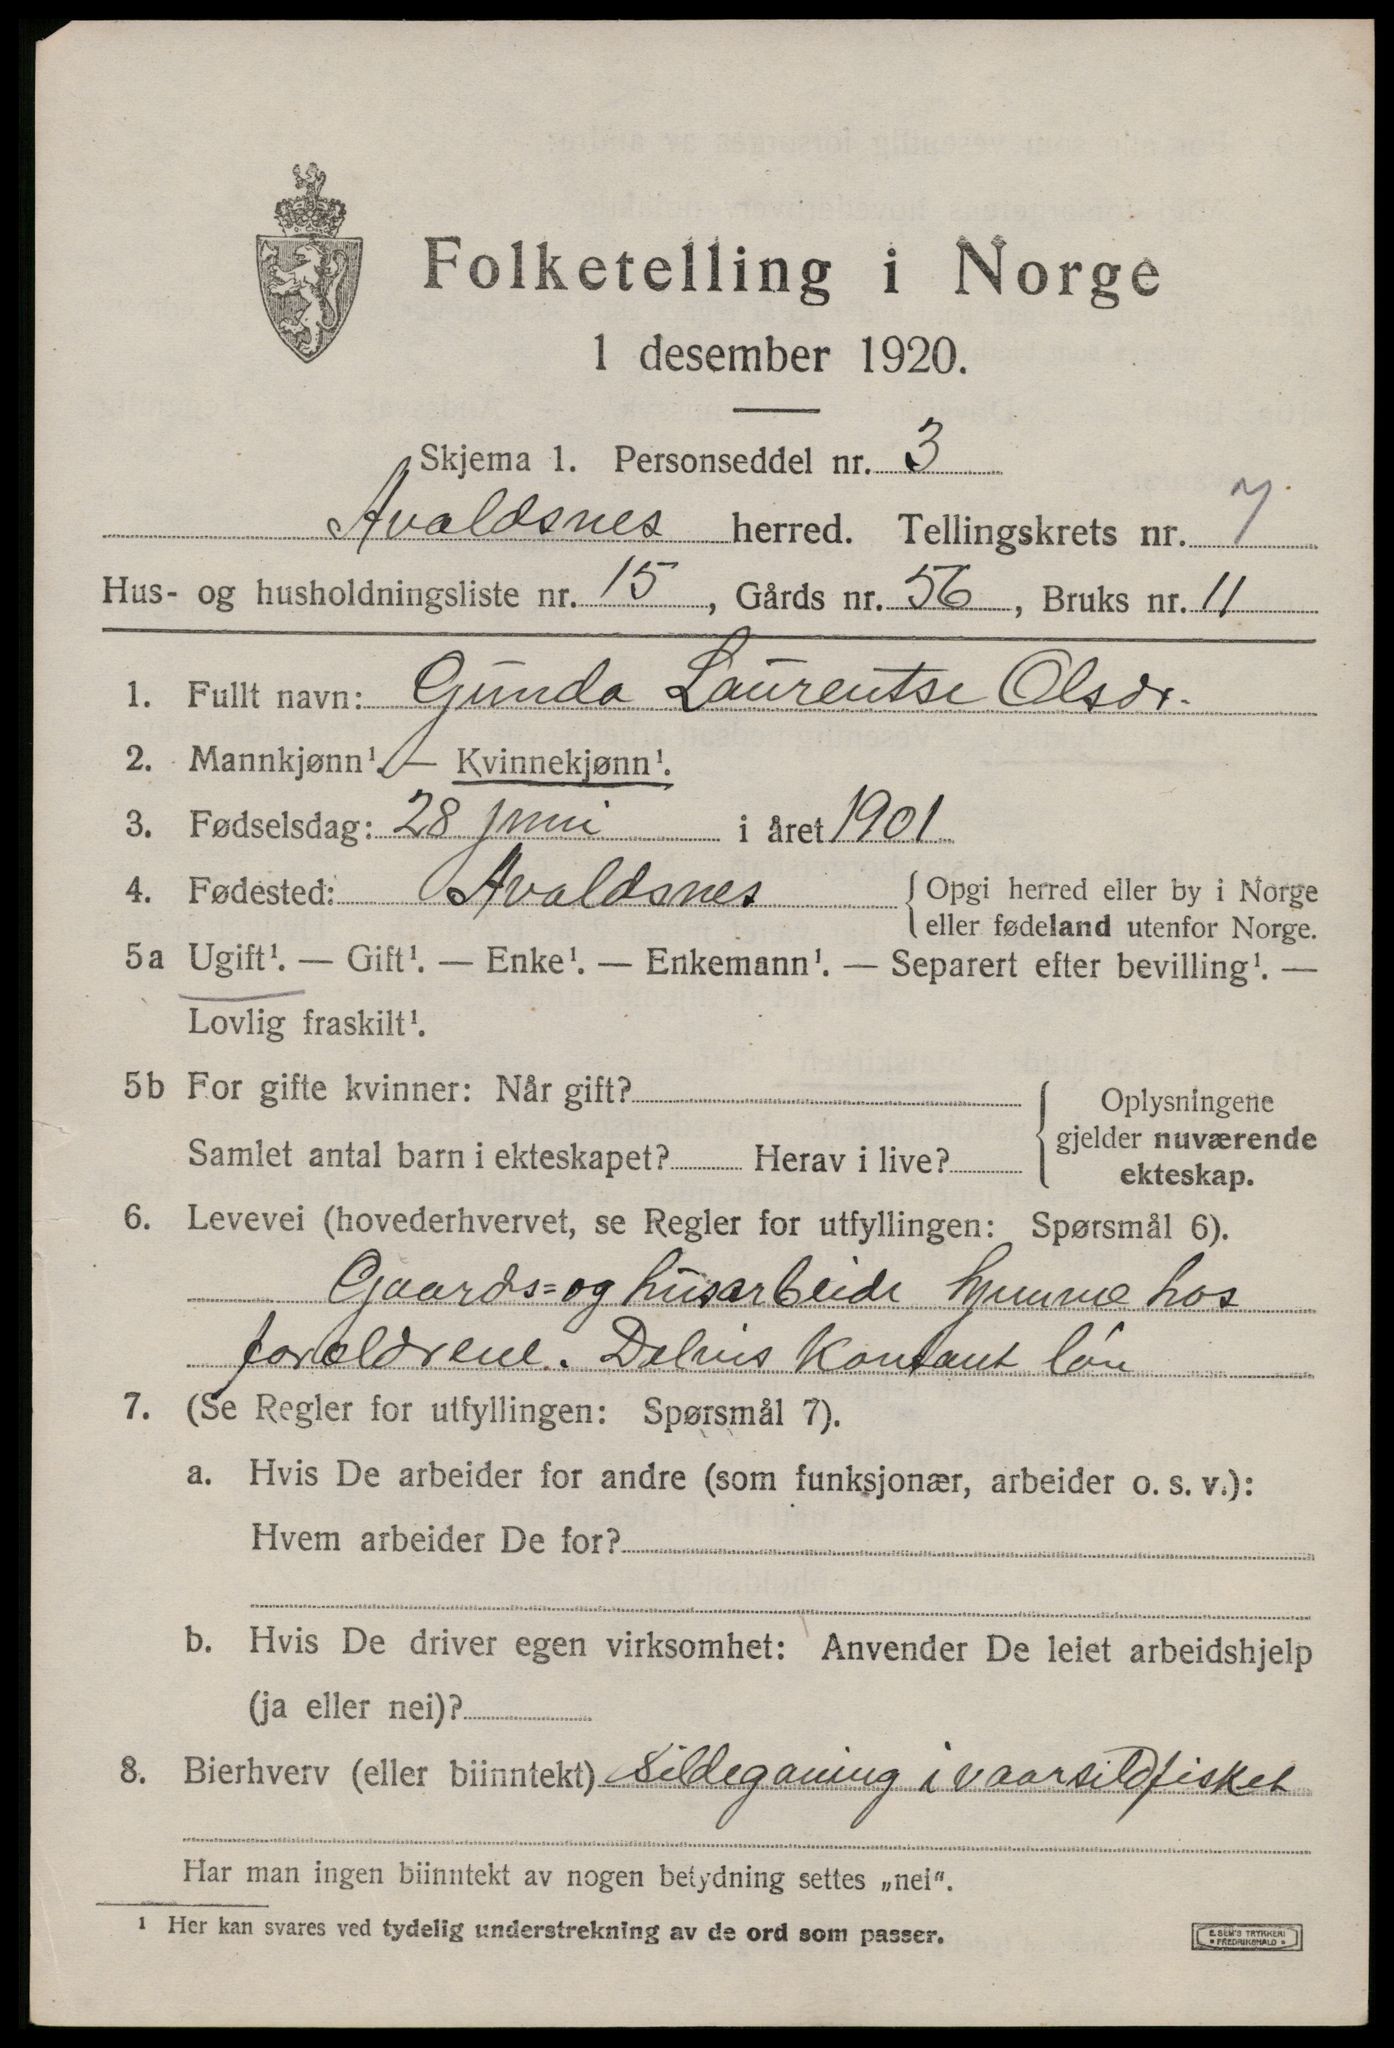 Folketelling i Norge
1 desember 1920.
Skjema 1. Personseddel nr. 3
Avaldsnes herred. Tellingskrets nr. 7
Hus- og husholdningsliste nr. 15, Gårds nr. 56, Bruks nr. 11
1. Fullt navn: Gunda Laurentse Olsdr.
2. Mannkjønn¹. — Kvinnekjønn¹.
3. Fødselsdag: 28 juni i året 1901
4. Fødested: Avaldsnes { Opgi herred eller by i Norge
eller fødeland utenfor Norge.
5a Ugift¹. — Gift¹. — Enke¹. — Enkemann¹. — Separert efter bevilling¹. —
Lovlig fraskilt¹.
5b For gifte kvinner: Når gift? { Oplysningene
gjelder nuværende
ekteskap.
Samlet antal barn i ekteskapet? Herav i live?
6. Levevei (hovederhvervet, se Regler for utfyllingen: Spørsmål 6).
Gaards= og husarbeide hjemme hos
forældrene. Delvis kontant løn
7. (Se Regler for utfyllingen: Spørsmål 7).
a. Hvis De arbeider for andre (som funksjonær, arbeider o. s. v.):
Hvem arbeider De for?
b. Hvis De driver egen virksomhet: Anvender De leiet arbeidshjelp
(ja eller nei)?
8. Bierhverv (eller biinntekt) sildeganing i vaarsildfisket
Har man ingen biinntekt av nogen betydning settes „nei“.
¹ Her kan svares ved tydelig understrekning av de ord som passer.
E. SEM'S TRYKKERI
• FREDRIKSHALD •